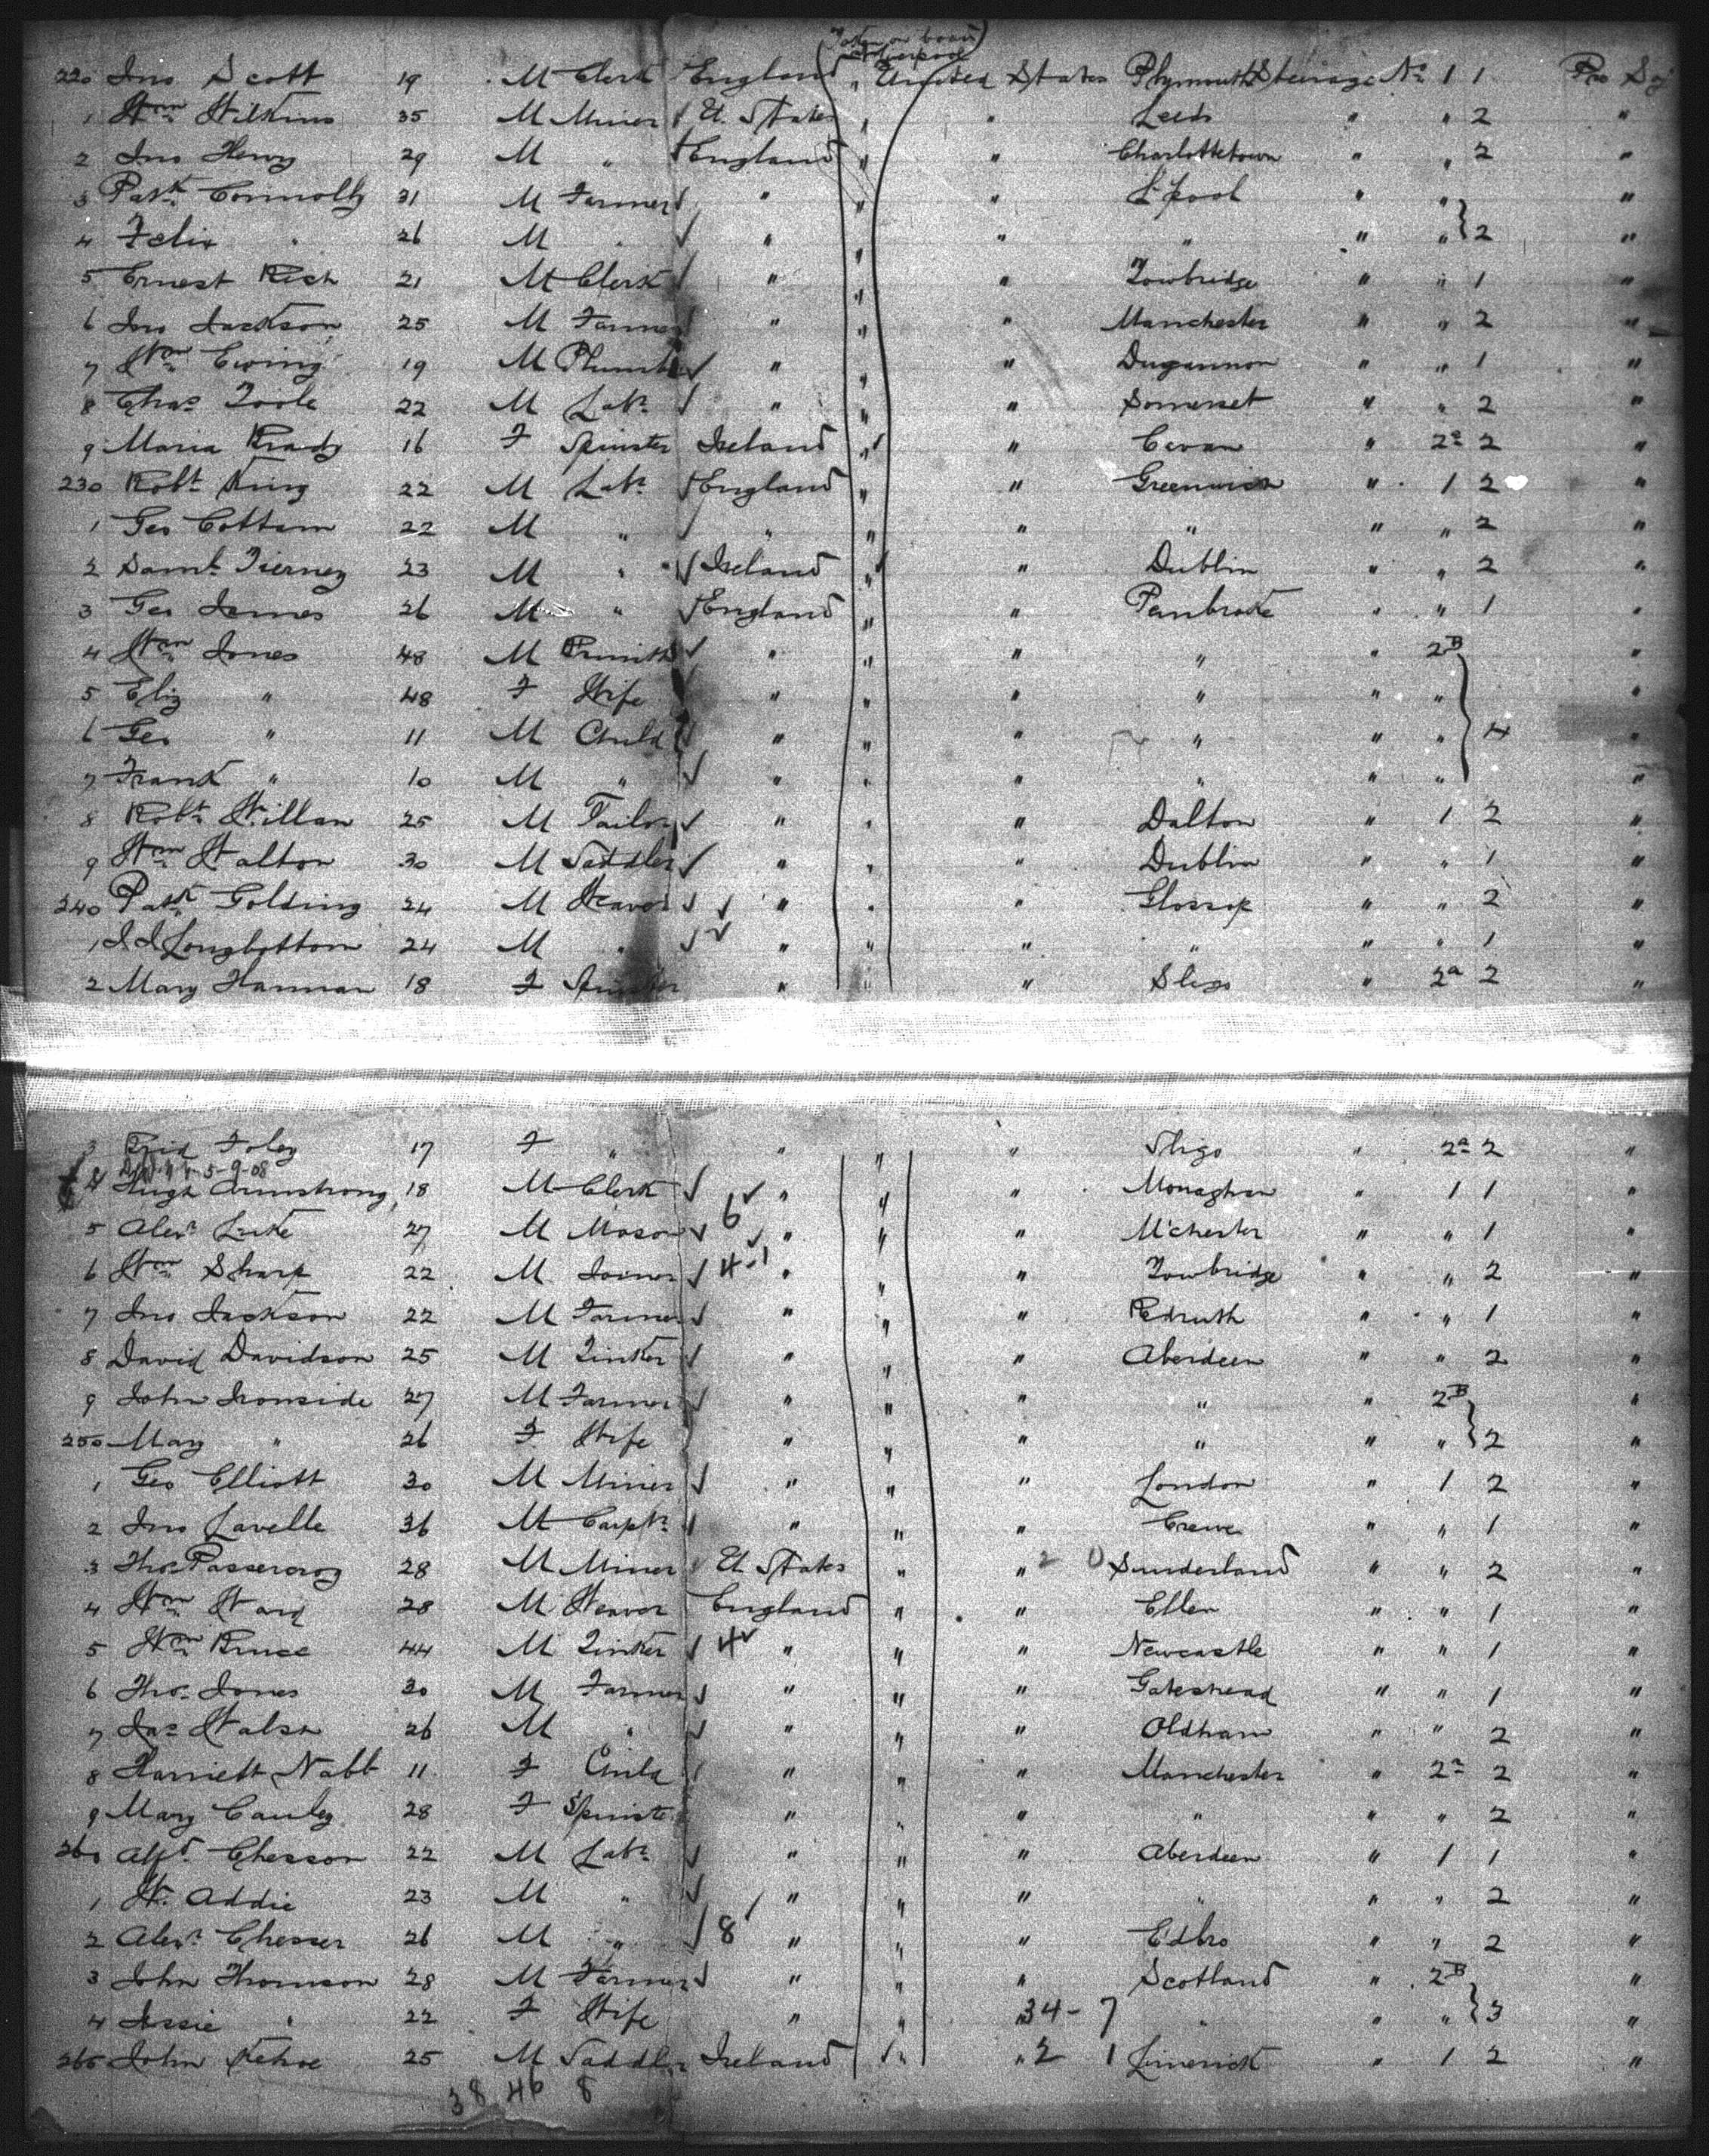 (Taken on board
at Liverpool)
220 Jno Scott 19 M Clerk England " United States Plymouth Steerage No 1 1 Pro Soj
1 Wm Wilkins 35 M Miner U. States " " Leeds " " 2 "
2 Jno Henry 29 M " England " " Charlottetown " " 2 "
3 Patk Connolly 31 M Farmer " " " L'pool " " "
4 Felix " 26 M " " " " " " " 2 "
5 Ernest Rich 21 M Clerk " " " Towbridge " " 1 "
6 Jno Jackson 25 M Farmer " " " Manchester " " 2 "
7 Wm Ewing 19 M Plumb " " " Dugannon " " 1 "
8 Chas Toole 22 M Labr " " " Somerset " " 2 "
9 Maria Brady 16 F Spinster Ireland " " Cavan " 2a 2 "
230 Robt King 22 M Labr England " " Greenwich " 1 2 "
1 Geo Cottam 22 M " " " " " " " 2 "
2 Saml Tierney 23 M " Ireland " " Dublin " " 2 "
3 Geo James 26 M " England " " Penbroke " " 1 "
4 Wm Jones 48 M " " " " " 2B "
5 Eliz " 48 F Wife " " " " " " "
6 Geo " 11 M Child " " " " " " 4 "
7 Frank " 10 M " " " " " " " "
8 Robt Willan 25 M Tailor " " " Dalton " 1 2 "
9 Wm Walton 30 M Saddler " " " Dublin " " 1 "
240 Patk Golding 24 M Weaver " " " Glossop " " 2 "
1 J J Longbottom 24 M " " " " " " " 1 "
2 Mary Hannan 18 F Spinster " " " Sligo " 2a 2 "
3 Brid Foley 17 F " " " " Sligo " 2a 2 "
5-9-08
4 Hugh Armstrong 18 M Clerk " " " Monaghan " 1 1 "
5 Alexr Luke 27 M Mason 6 " " " M'chester " " 1 "
6 Wm Sharp 22 M Joiner 4-1 " " " Towbridge " " 2 "
7 Jno Jackson 22 M Farmer " " " Redruth " " 1 "
8 David Davidson 25 M Tinker " " " Aberdeen " " 2 "
9 John Ironside 27 M Farmer " " " " " 2B "
250 Mary " 26 F Wife " " " " " " 2 "
1 Geo Elliott 30 M Miner " " " London " 1 2 "
2 Jno Lavelle 36 M Carptr " " " Crewe " " 1 "
3 Thos 28 M Miner U. States " " 2 0 Sunderland " " 2 "
4 Wm Ward 28 M Weaver England " " Ellen " " 1 "
5 Wm Bruce 44 M Tinker 4 " " " Newcastle " " 1 "
6 Thos Jones 30 M Farmer " " " Gateshead " " 1 "
7 Jas Walsh 26 M " " " " Oldham " " 2 "
8 Harriett Nabb 11 F Child " " " Manchester " 2a 2 "
9 Mary Cauley 28 F Spinste " " " " " " 2 "
260 Alfd Chesson 22 M Labr " " " Aberdeen " 1 1 "
1 W. Addie 23 M " " " " " " " 2 "
2 Alexr Chesser 26 M " 8 " " " Edbro " " 2 "
3 John Thomson 28 M Farmer " " " Scotland " 2B "
4 Jessie " 22 F Wife " " " 34-7 " " " 3 "
265 John Kehoe 25 M Saddler Ireland " " 2 1 Limerick " 1 2 "
38 46 8